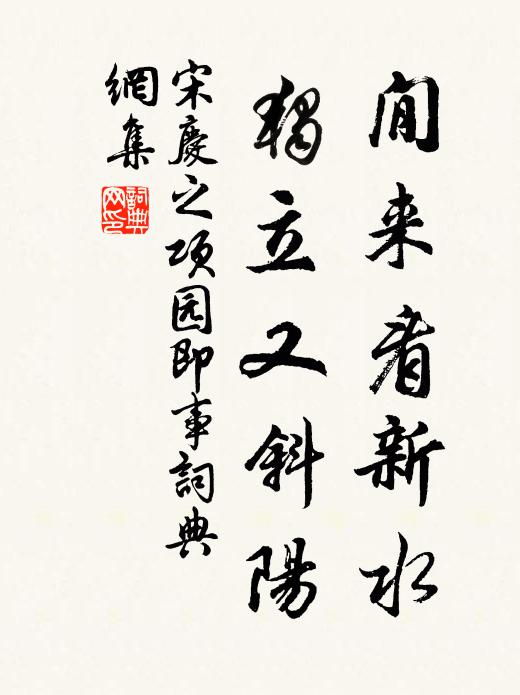 閒来看新水
獨立又斜陽
宋慶之项园即事詞典
網集
詞典网印